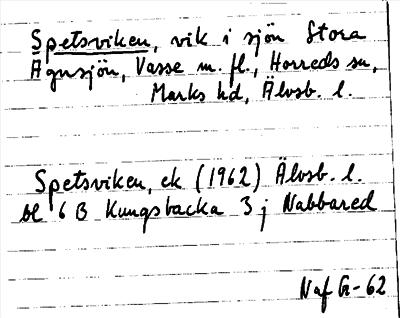 Spetsviken, vik i sjön Stora
Agnsjön, Vasse m. fl., Horreds sn,
Marks hd, Älvsb. l.
Spetsviken, ek (1962) Älvsb. l.
bl 6 B Kungsbacka 3 j Nabbared
Naf G-62